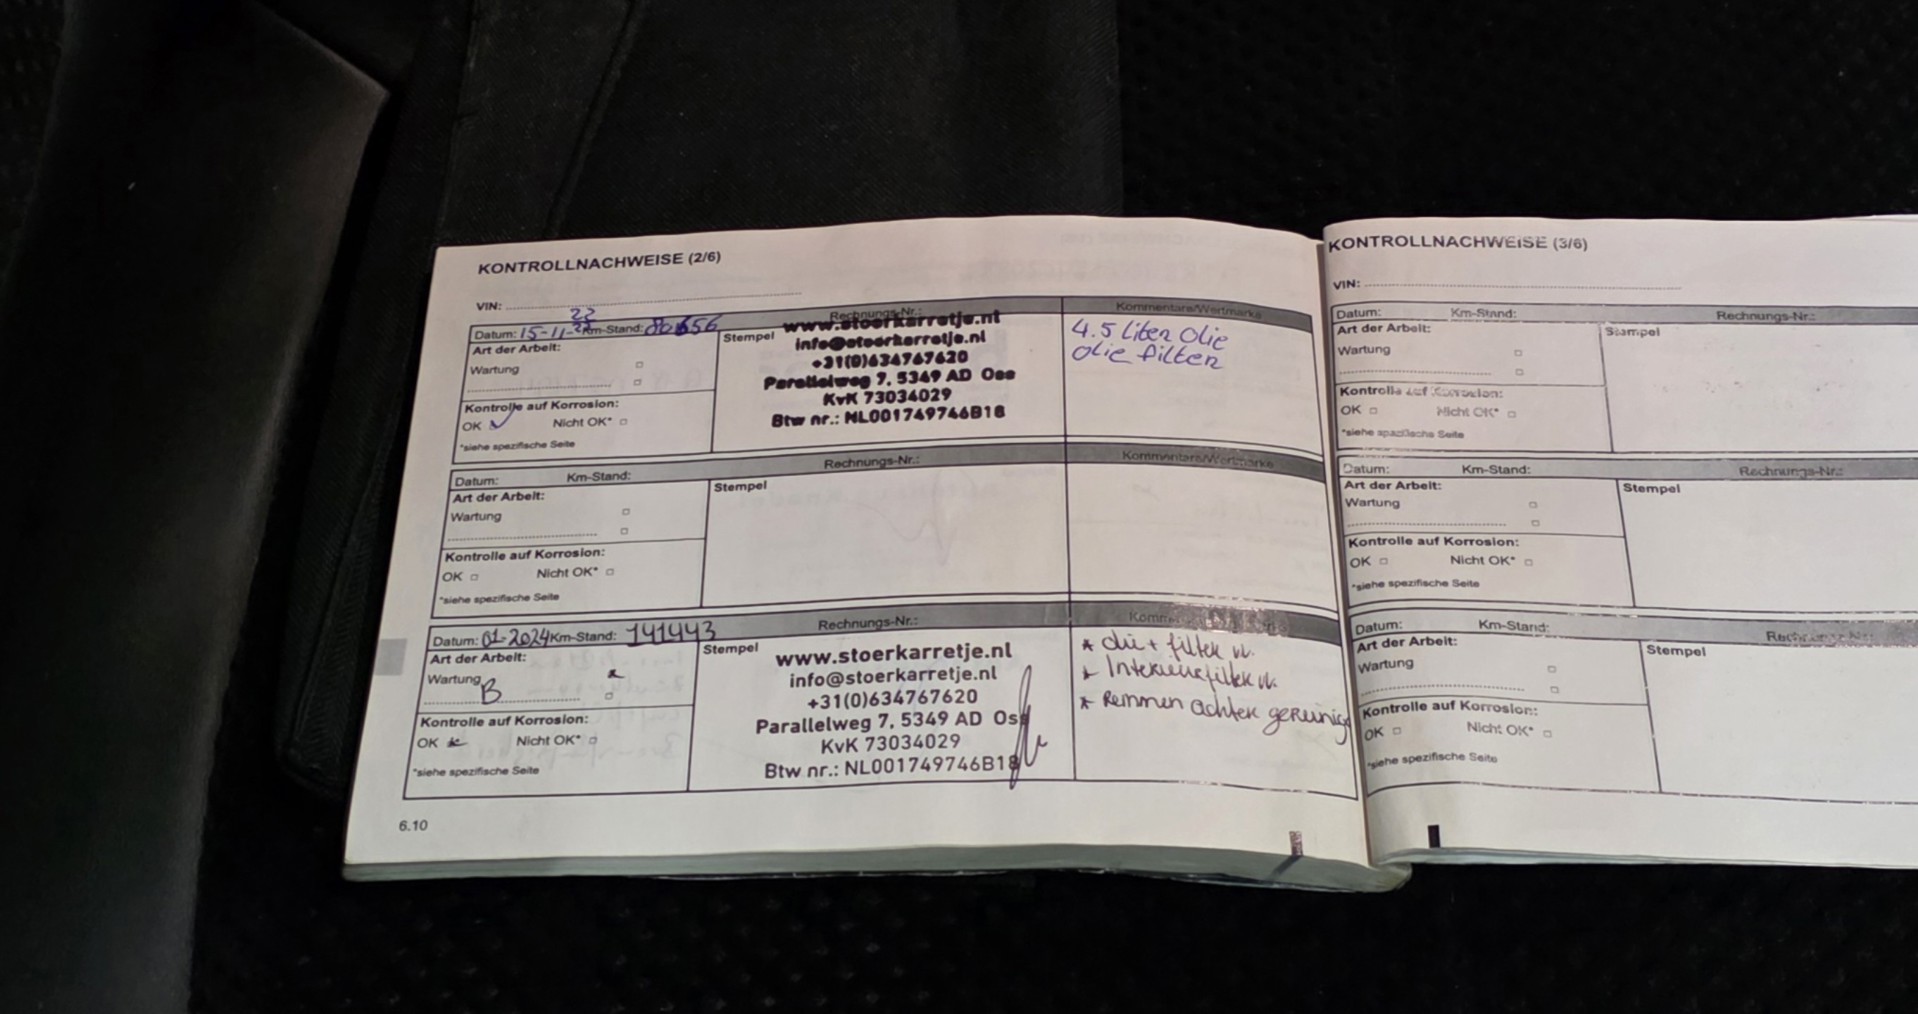 KONTROLLNACHWEISE (2/6)
VIN:
Datum: 15-11-22 Km-Stand: Rechnungs-Nr.: Kommentare/Wertmarke
Art der Arbeit:
Wartung
Kontrolle auf Korrosion:
OK Nicht OK*
*siehe spezifische Seite
Stempel
www.stoerkarretje.nl
info@stoerkarretje.nl
+31(0)634767620
Parallelweg 7, 5349 AD Oss
KvK 73034029
Btw nr.: NL001749746B18
4.5 liter Olie
olie filter
Datum: Km-Stand: Rechnungs-Nr.: Kommentare/Wertmarke
Art der Arbeit:
Wartung
Kontrolle auf Korrosion:
OK Nicht OK*
*siehe spezifische Seite
Stempel
Datum: 01-2024 Km-Stand: 141443 Rechnungs-Nr.:
Art der Arbeit:
Wartung
B
Kontrolle auf Korrosion:
OK Nicht OK*
*siehe spezifische Seite
Stempel
www.stoerkarretje.nl
info@stoerkarretje.nl
+31(0)634767620
Parallelweg 7, 5349 AD Oss
KvK 73034029
Btw nr.: NL001749746B18
* olie + filter v.
* Interieurfilter v.
* Remmen achter gereinigd
6.10
KONTROLLNACHWEISE (3/6)
VIN:
Datum: Km-Stand: Rechnungs-Nr.:
Art der Arbeit:
Wartung
Kontrolle auf Korrosion:
OK Nicht OK*
*siehe spezifische Seite
Stempel
Datum: Km-Stand: Rechnungs-Nr.:
Art der Arbeit:
Wartung
Kontrolle auf Korrosion:
OK Nicht OK*
*siehe spezifische Seite
Stempel
Datum: Km-Stand:
Art der Arbeit:
Wartung
Kontrolle auf Korrosion:
OK Nicht OK*
*siehe spezifische Seite
Stempel